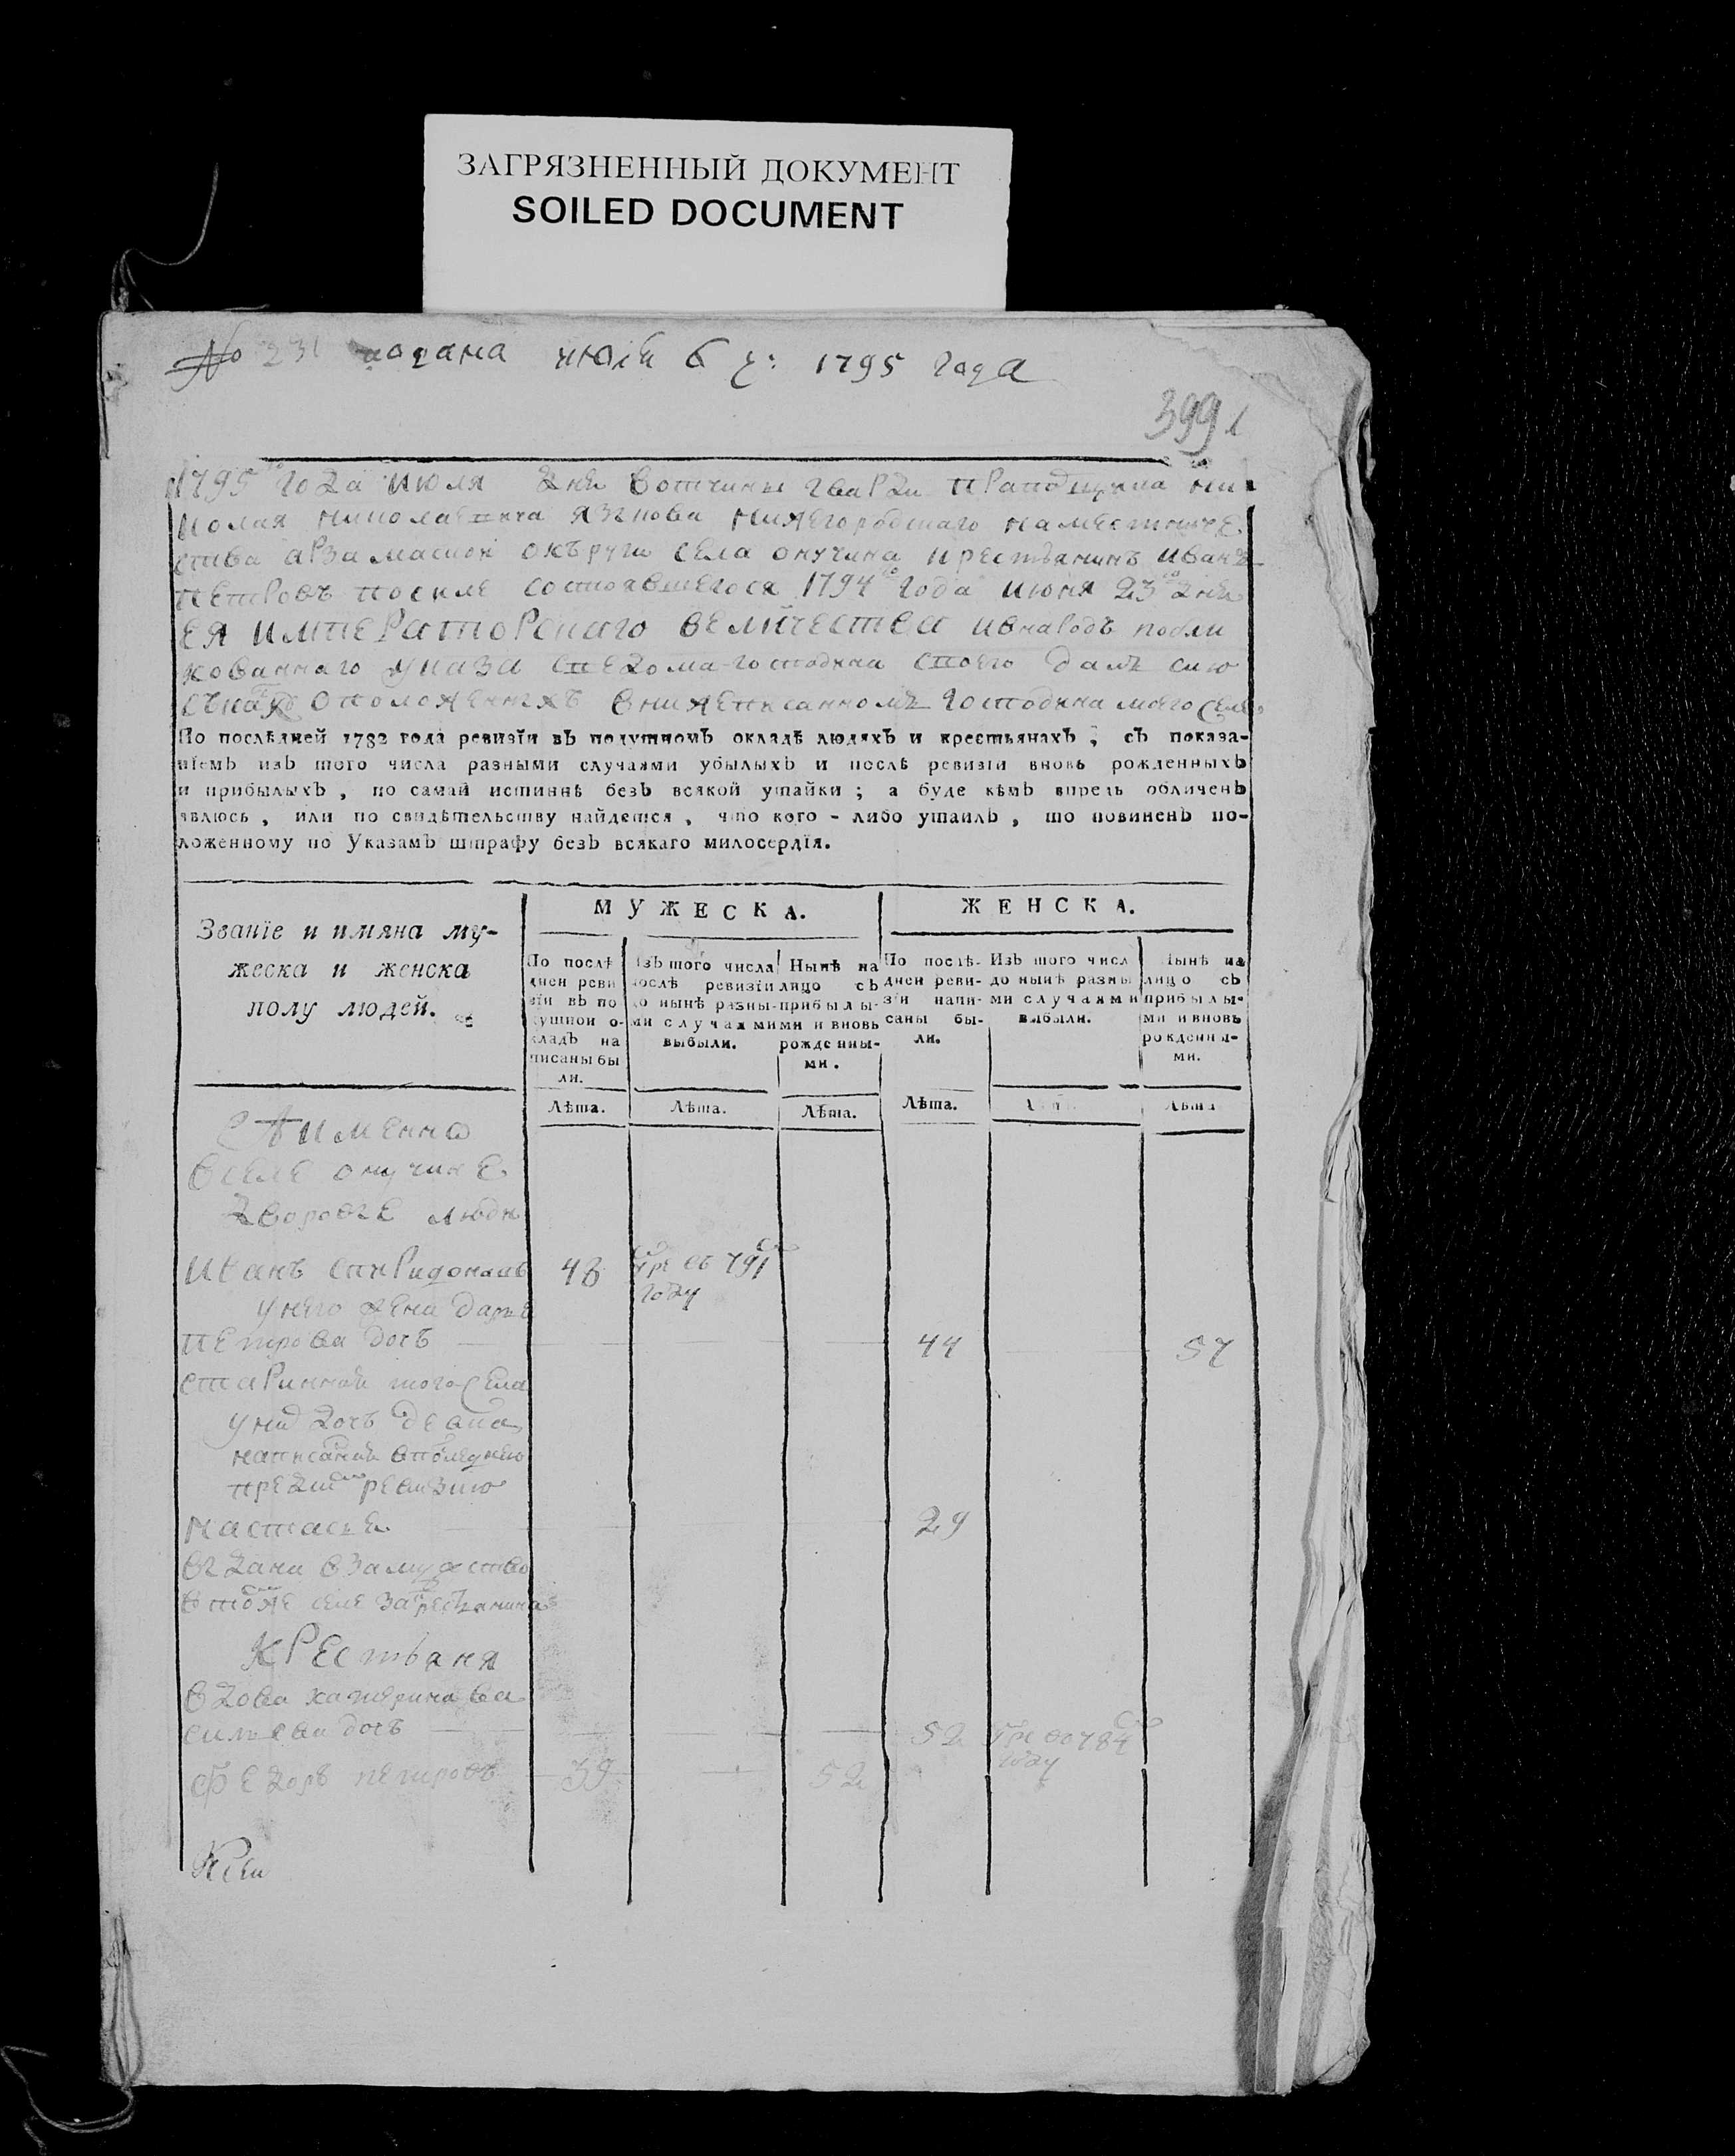 ЗАГРЯЗНЕННЫЙ ДОКУМЕНТ
SOILED DOCUMENT
№ 231 подана июля 6 д: 1795 года
399
1795 го года июля дня вотчины гварди прапощика ни
колая николаевича языкова нижегородскаго наместниче
ства арзамаской окъруги села онучина крестьянинъ иванъ
петровъ посиле состоявшегося 1794 го года июня 23 го дня
ЕЯ ИМПЕРаторскаго величества ивнародъ побли
кованнаго указа сведома господина своего далъ сию
оположенныхъ внижеписанномъ господина моего селе
По послѣдней 1782 года ревизїи въ подушномъ окладѣ людяхъ и крестьянахъ, съ показа-
нїемъ изъ того числа разными случаями убылыхъ и послѣ ревизїи вновь рожденныхъ
и прибылыхъ, по самай истиннѣ безъ всякой утайки; а буде кѣмъ впредь обличенъ
явлюсь, или по свидѣтельству найдется, что кого-либо утаилъ, то повиненъ по-
ложенному по Указамъ штрафу безъ всякаго милосердїя.
МУЖЕСКА. ЖЕНСКА.
Званїе и имяна му-
жеска и женска
полу людей.
По послѣ
дней реви
зїи въ по
душной о-
кладъ на
писаны бы
ли.
Изъ того числа
послѣ ревизїи
до нынѣ разны-
ми случаями
выбыли.
Нынѣ на
лицо съ
прибылы-
ми и вновь
рожденны-
ми.
По послѣ-
дней реви-
зїи напи-
саны бы-
ли.
Изъ того числ
до нынѣ разны
ми случаями
выбыли.
Нынѣ на
лицо съ
прибылы-
ми и вновь
рожденны-
ми.
Лѣта. Лѣта. Лѣта. Лѣта. Лѣта. Лѣта
А имянно
вселе онучине
дворовые люди
Иванъ спиридоновъ 48 умре въ 791 году
унего жена дарья
петрова дочь 44 57
стариннай того села
уних дочь девка
написанная впоследнею
пред сию ревизию
настасья 29
выдана взамужство
втоже селе закрестьянина
Крестьяня
вдова катерина ва
сильева дочь 52 умре во 784 году
Федоръ петровъ 39 52